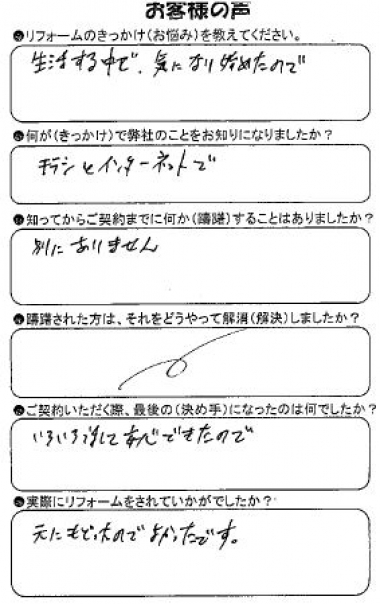 お客様の声
●リフォームのきっかけ(お悩み)を教えてください。
生活する中で、気になり始めたので
●何が(きっかけ)で弊社のことをお知りになりましたか?
チラシとインターネットで
●知ってからご契約までに何か(躊躇)することはありましたか?
別にありません
●躊躇された方は、それをどうやって解消(解決)しましたか?
●ご契約いただく際、最後の(決め手)になったのは何でしたか?
いろいろ話して安心できたので
●実際にリフォームをされていかがでしたか?
元にもどったのでよかったです。